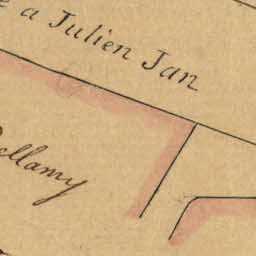 a Julien Jan
ellamy